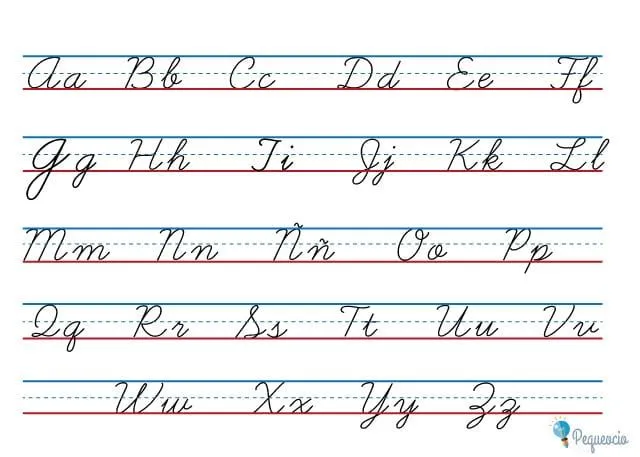 Aa Bb Cc Dd Ee Ff
Gg Hh Ii Jj Kk Ll
Mm Nn Ññ Oo Pp
Qq Rr Ss Tt Uu Vv
Ww Xx Yy Zz
Pequeocio